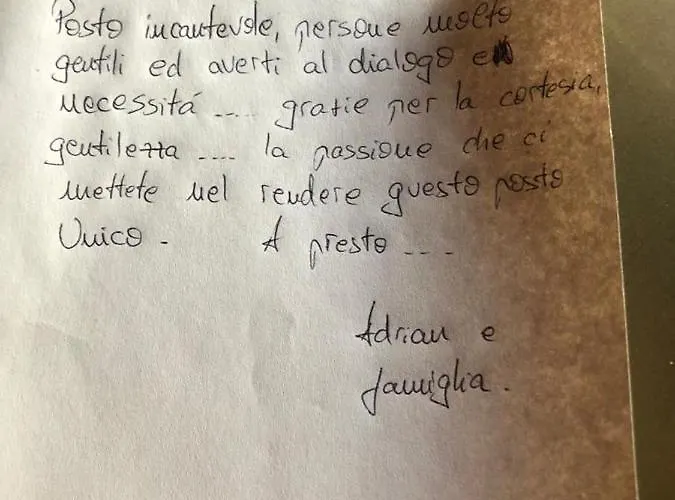 Posto incantevole, persone molto
gentili ed averti al dialogo e
necessitá .... gratie per la cortesia,
gentilezza .... la passione che ci
mettete nel rendere questo posto
Unico. A presto ...
Adrian e
famiglia.